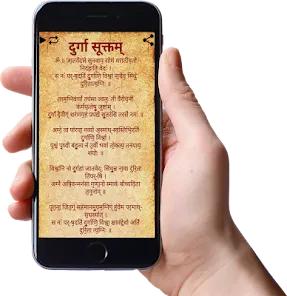 दुर्गा सूक्तम्
ॐ ॥ जातवेदसे सुनवाम सोमं मरातीयतो
निदहाति वेदः ।
स नः पर्-षदति दुर्गाणि विश्वा नावेव सिन्धुं
दुरितात्यग्निः ॥
तामग्निवर्णां तपसा ज्वलन्तीं वैरोचनीं
कर्मफलेषु जुष्टाम् ।
दुर्गां देवीग्ं शरणमहं प्रपद्ये सुतरसि तरसे नमः ॥
अग्ने त्वं पारया नव्यो अस्मान्-थ्स्वस्तिभिरति
दुर्गाणि विश्वा ।
पूश्च पृथ्वी बहुला न उर्वी भवा तोकाय तनयाय
शंयोः ॥
विश्वानि नो दुर्गहा जातवेदः सिन्धुन्न नावा दुरिता
तिपर्-षि ।
अग्ने अत्रिवन्मनसा गृणानो स्माकं बोध्यविता
तनूनाम् ॥
पृतना जितग्ं सहमानमुग्रमग्निग्ं हुवेम परमाथ्-
सधस्थात् ।
स नः पर्-षदति दुर्गाणि विश्वा क्षामद्देवो अति
दुरिता त्यग्निः ॥